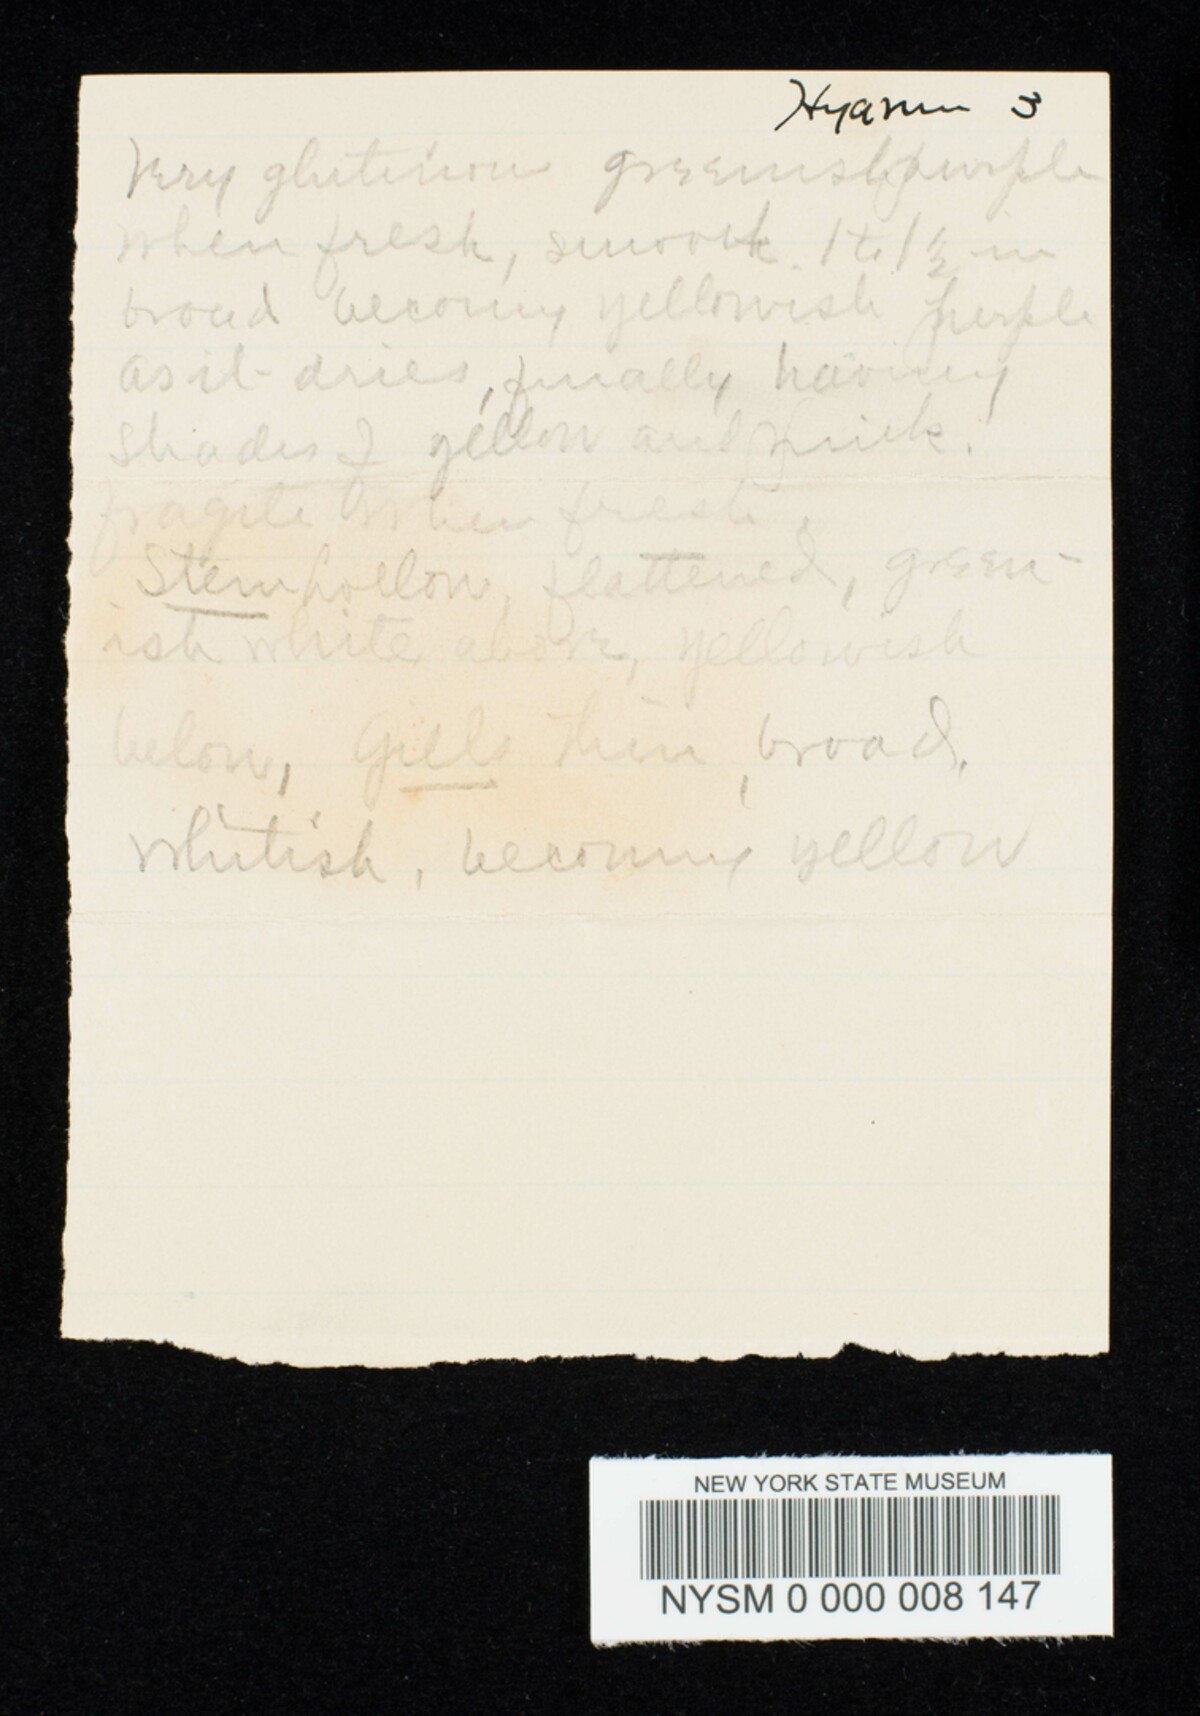 3
Very glutinous greenish purple
when fresh, smooth. 1 to 1 1/2 in
broad becoming yellowish purple
as it dries, finally having
shades of yellow and pink.
fragile when fresh.
Stem hollow, flattened, green-
ish white above, yellowish
below, Gills thin, broad,
whitish, becoming yellow
NEW YORK STATE MUSEUM
NYSM 0 000 008 147